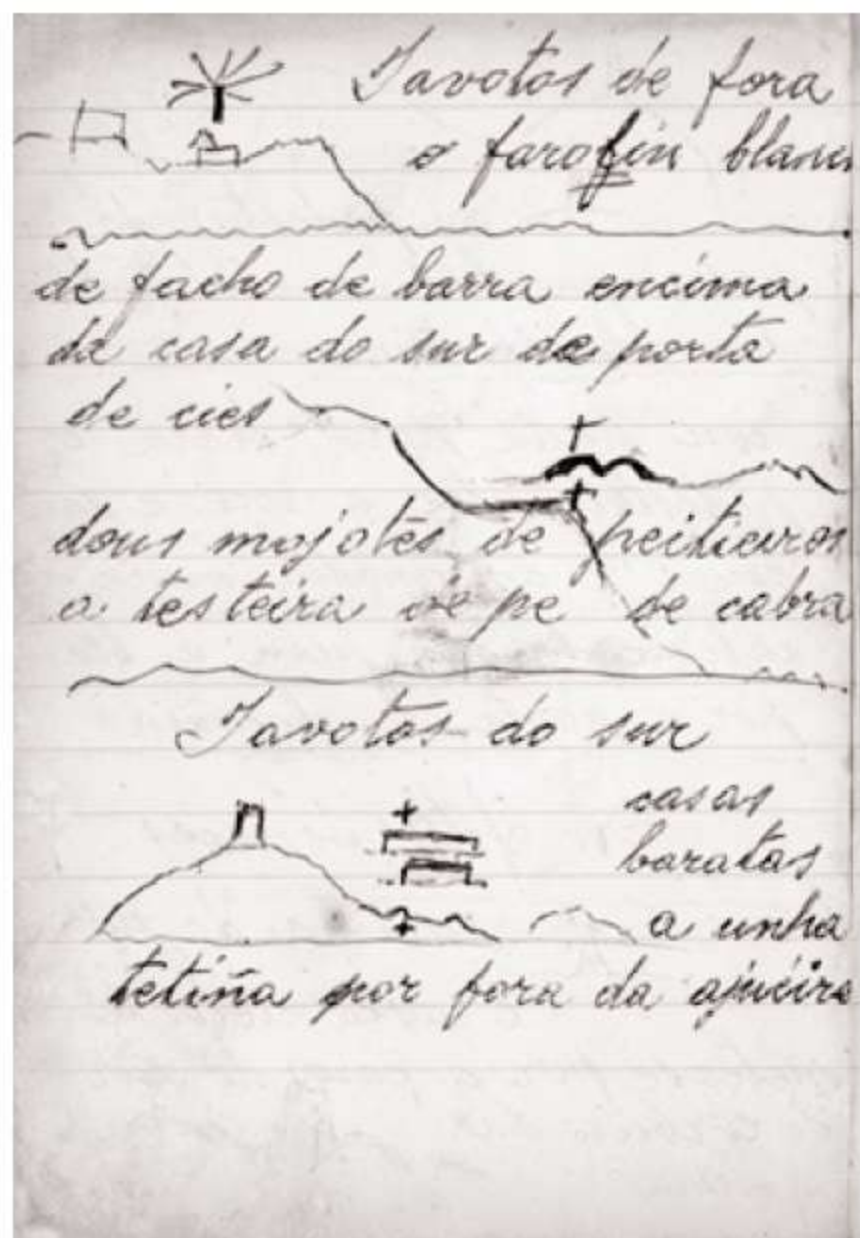 Javotos de fora
o farolin blanc
de facho de barra encima
da casa do sur da porta
de cies
dous mojotes de peitieiros
a testeira de pe de cabra
Javotos do sur
casas
baratas
a unha
tetiña por fora da ajueira